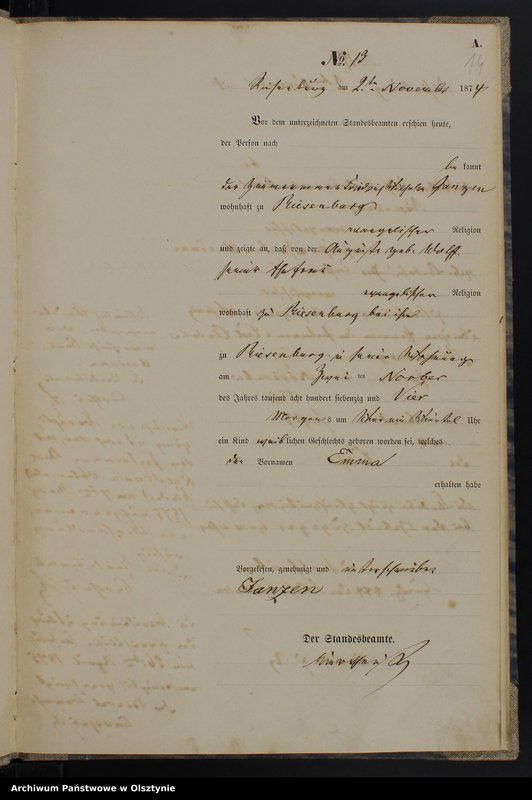 A.
No. 13
14
Riesenburg am 2ten November 1874
Vor dem unterzeichneten Standesbeamten erschien heute,
der Person nach
be kannt
der Janzen
wohnhaft zu Riesenburg
evangelischer Religion
und zeigte an, daß von der Auguste geb. Wolff
seiner Ehefrau
evangelischer Religion
wohnhaft zu Riesenburg bei ihm
zu Riesenburg in seiner Wohnung
am Zwei ten Novber
des Jahres tausend acht hundert siebenzig und Vier
Morgen s um Uhr
ein Kind weib lichen Geschlechts geboren worden sei, welches
den Vornamen Emma
erhalten habe
Vorgelesen, genehmigt und unterschrieben
Janzen
Der Standesbeamte.
Archiwum Państwowe w Olsztynie